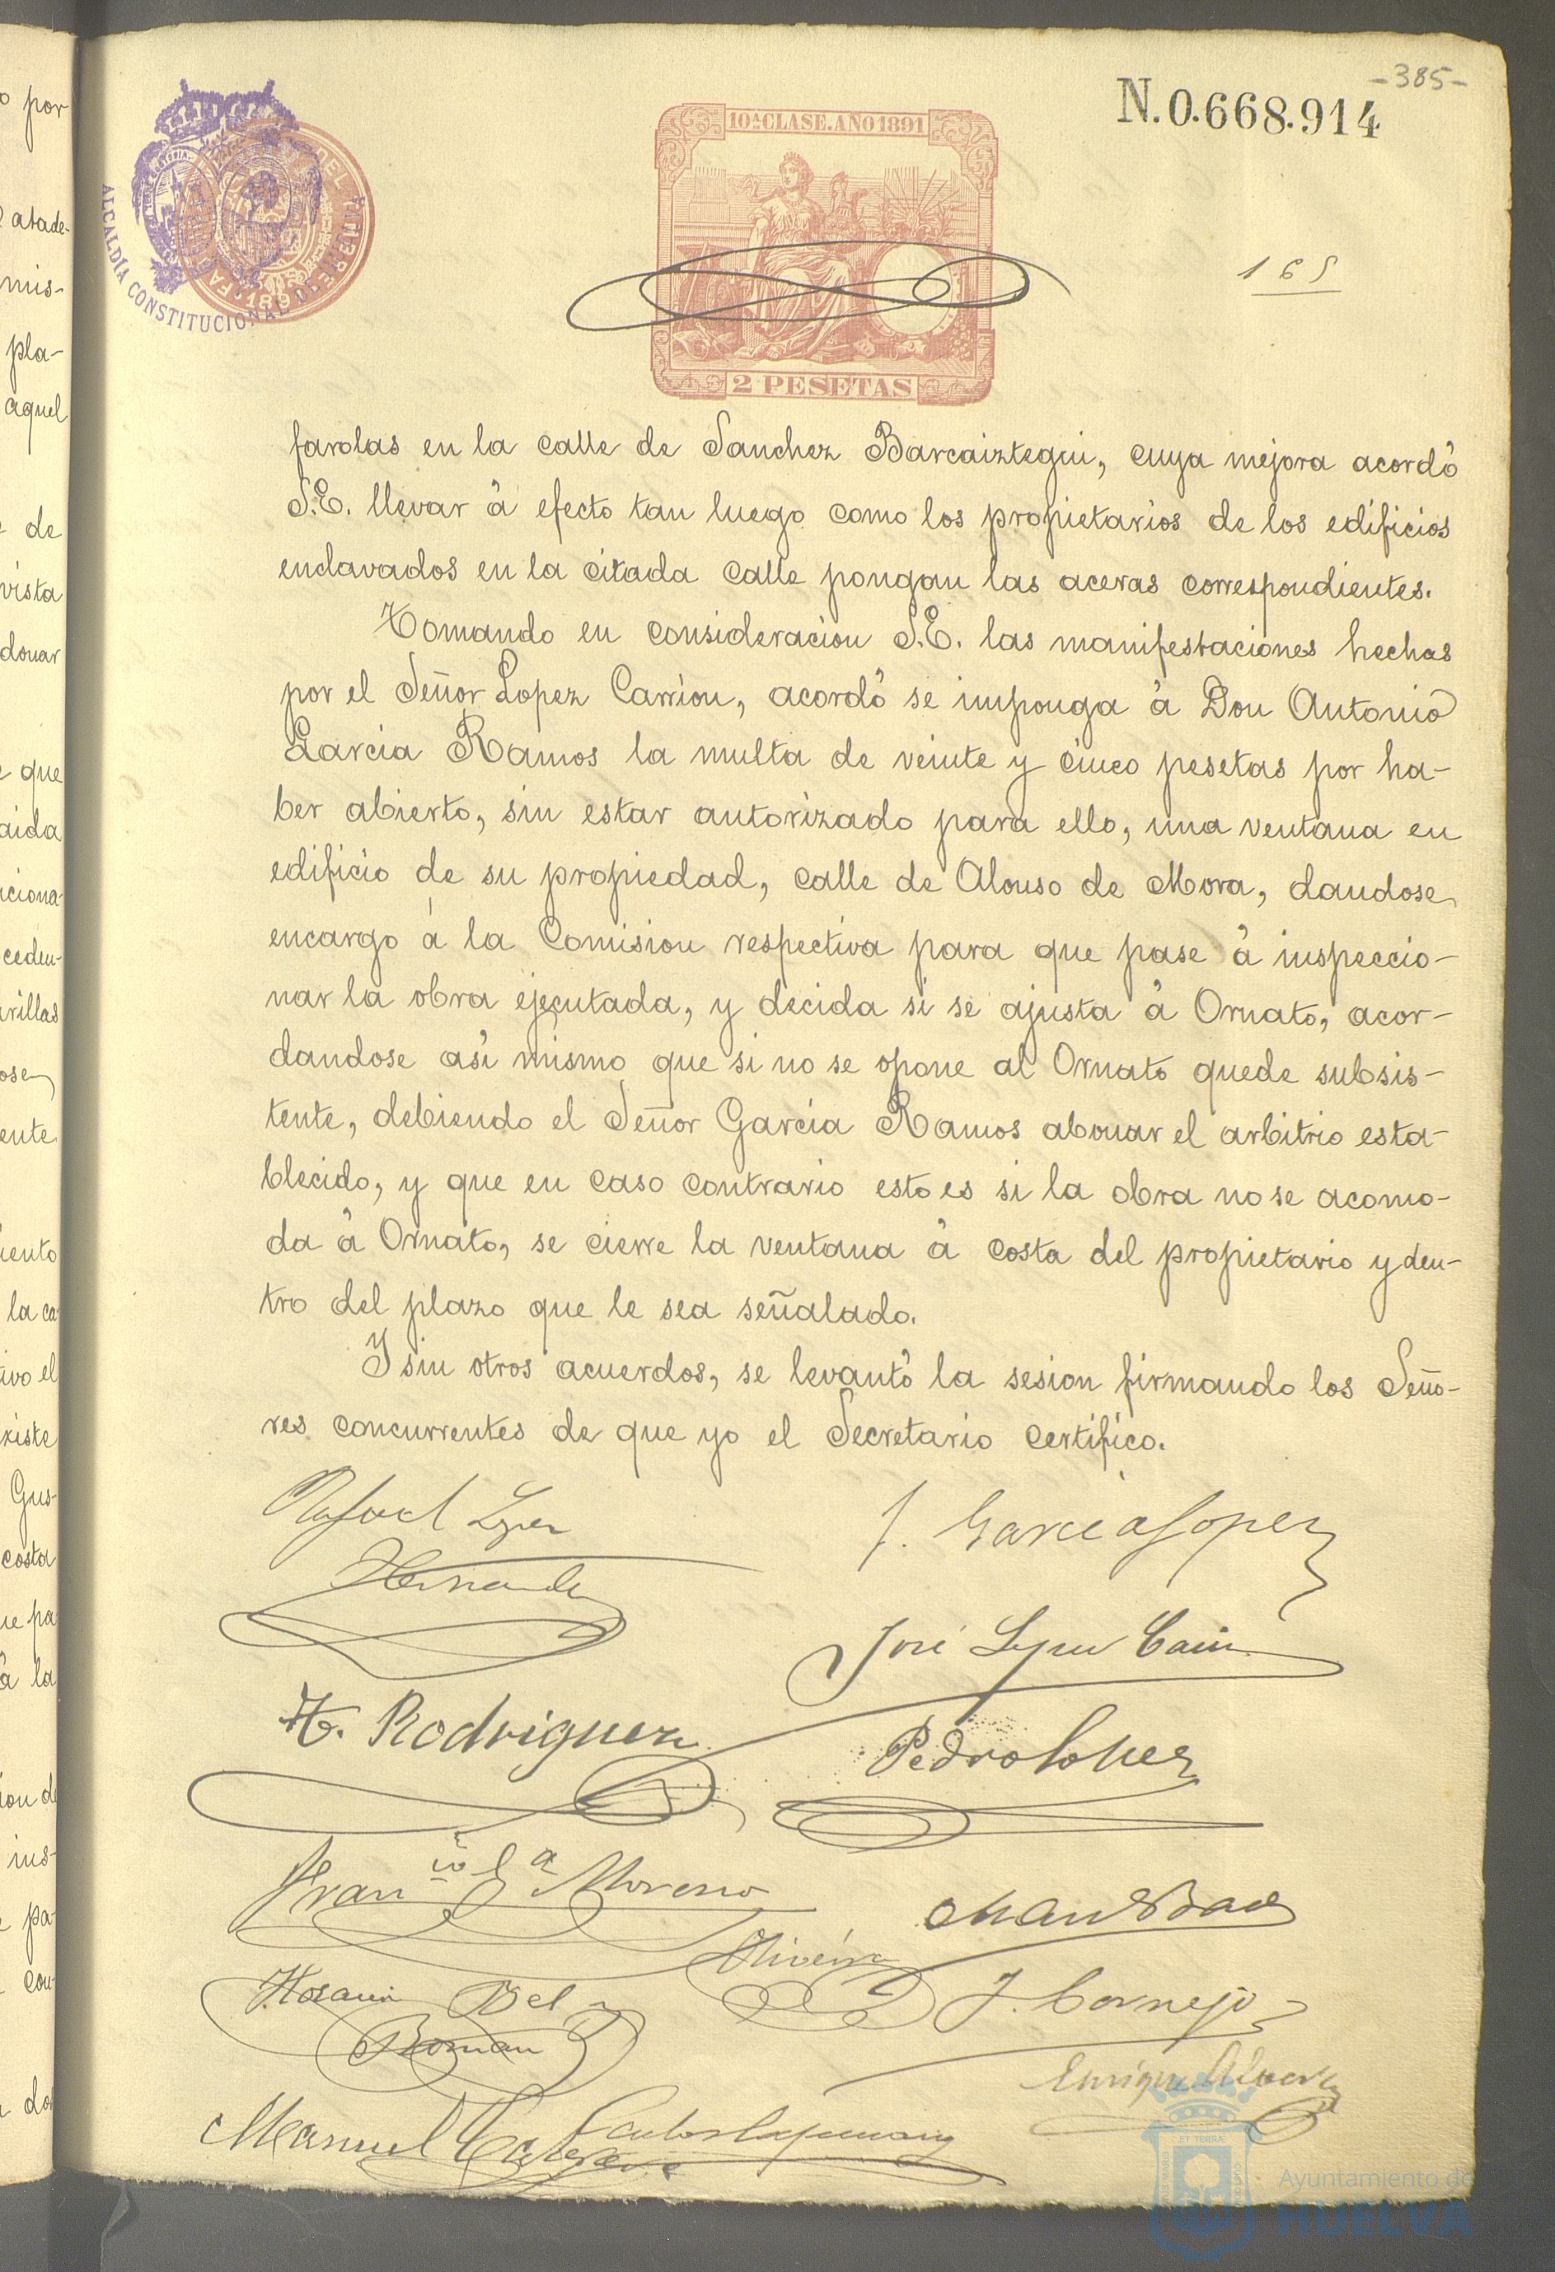 -385-
N.0.668.914
10ª CLASE. AÑO 1891
ALCALDÍA CONSTITUCIONAL DE
2 PESETAS
165
farolas en la calle de Sanchez Barcaiztegui, cuya mejora acordó
S.E. llevar à efecto tan luego como los propietarios de los edificios
enclavados en la citada calle pongan las aceras correspondientes.
Tomando en consideracion S.E. las manifestaciones hechas
por el Señor Lopez Carrion, acordó se imponga à Don Antonio
Garcia Ramos la multa de veinte y cinco pesetas por ha-
ber abierto, sin estar autorizado para ello, una ventana en
edificio de su propiedad, calle de Alonso de Mora, dandose
encargo à la Comision respectiva para que pase à inspeccio-
nar la obra ejecutada, y decida si se ajusta à Ornato, acor-
dandose asi mismo que si no se opone al Ornato quede subsis-
tente, debiendo el Señor Garcia Ramos abonar el arbitrio esta-
blecido, y que en caso contrario esto es si la obra no se acomo-
da à Ornato, se cierre la ventana à costa del propietario y den-
tro del plazo que le sea señalado.
Y sin otros acuerdos, se levantó la sesion firmando los Seño-
res concurrentes de que yo el Secretario certifico.
Rafael Lopez
Hernandez
J. Garcia Lopez
José Lopez
H. Rodriguez
Pedro Lopez
Franco Ga Moreno
Oliveira
J. Cornejo
Del
Roman
Enrique
Manuel
Ayuntamiento de
HUELVA